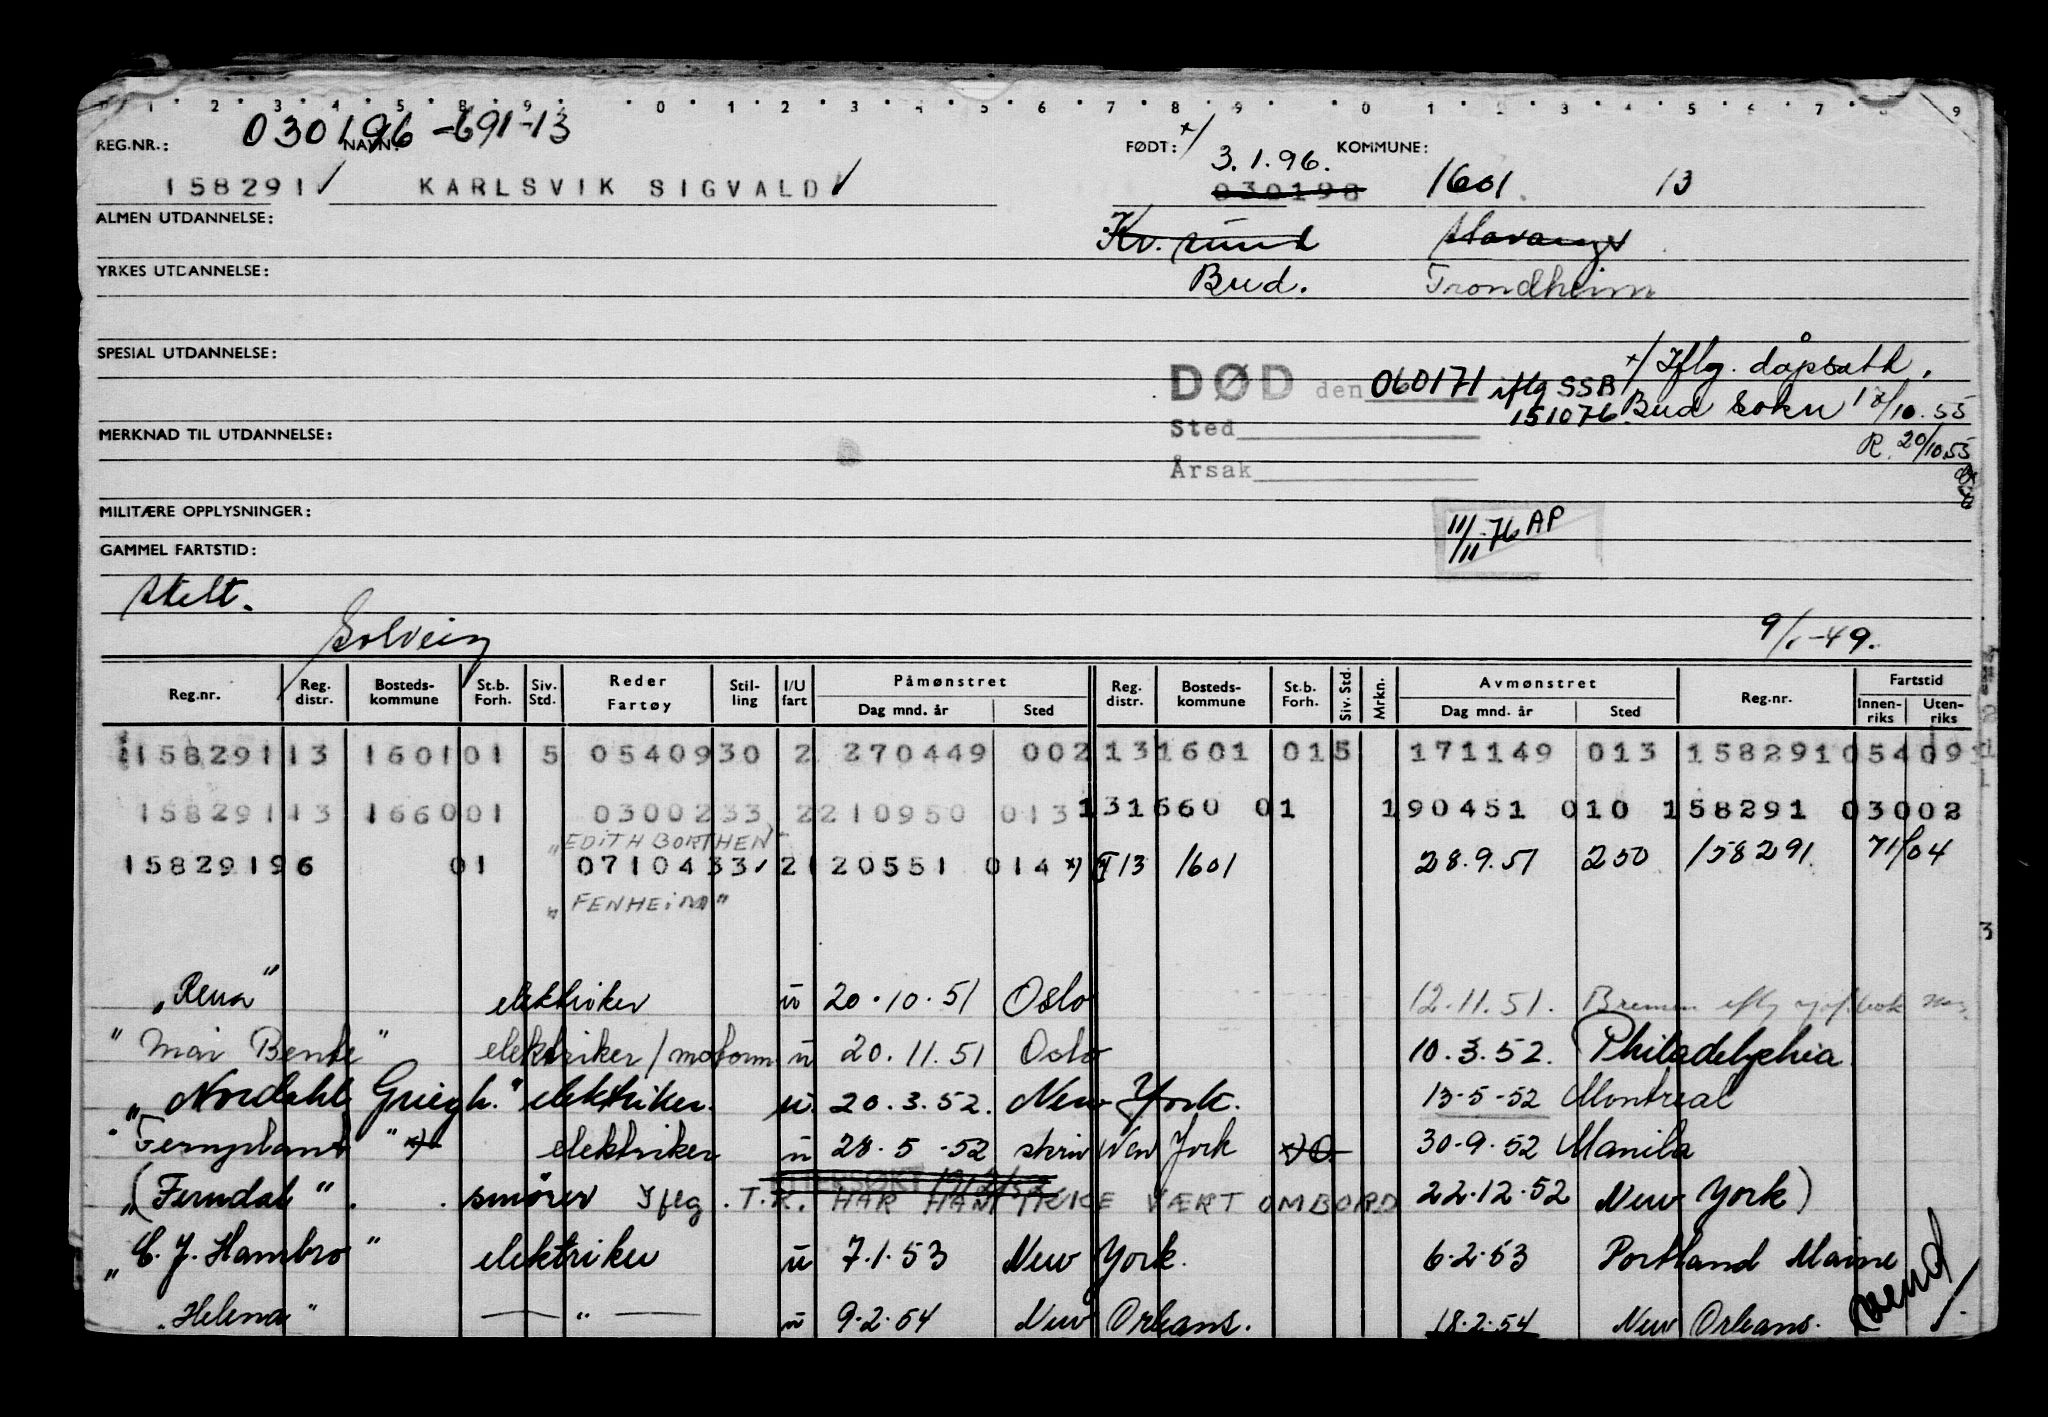 1 2 3 4 5 8 9 0 1 2 3 4 5 6 7 8 9 0 1 2 3 4 5 6 7 8 9
030196-691-13
REG.NR.: NAVN: FØDT: x/ KOMMUNE:
3.1.96.
158291 ✓ KARLSVIK SIGVALD ✓ 030198 1601 13
ALMEN UTDANNELSE: Kr. sund Stavanger
YRKES UTDANNELSE: Bud. Trondheim
SPESIAL UTDANNELSE: x/ Iflg. dåpsatt.
DØD den 060171 iflg SSB 151076. Bud sokn 18/10.55
Sted
MERKNAD TIL UTDANNELSE: R. 20/10.55
Årsak
MILITÆRE OPPLYSNINGER: 11/11.76 AP
GAMMEL FARTSTID:
Skilt.
Solveig 9/1-49.
Reg.nr. Reg. distr. Bosteds-kommune St.b. Forh. Siv. Std. Reder Fartøy Stil-ling I/U fart Påmønstret Dag mnd. år Sted Reg. distr. Bosteds-kommune St.b. Forh. Siv. Std. Mrkn. Avmønstret Dag mnd. år Sted Reg.nr. Fartstid Innen-riks Uten-riks
158291 13 1601 01 5 05409 30 2 270449 002 13 1601 01 5 171149 013 158291 05409
158291 13 1660 01 03002 33 2 210950 013 13 1660 01 190451 010 158291 03002
"EDITH BORTHEN"
158291 96 01 07104 33 2 120551 014 x) x) 13 1601 28.9.51 250 158291 71/04
"FENHEIM"
"Rena" elektriker u 20.10.51 Oslo 12.11.51. Bremen
"Mai Bente" elektriker/motorm u 20.11.51 Oslo 10.3.52. Philadelphia
"Nordahl Griegh." elektriker. u. 20.3.52. New York. 13-5-52 Montreal
"Fernplant" x) elektriker u 28.5-52 skriv New York x) 30-9.52 Manila
"(Ferndale" smører Iflg. T.R. HAR HAN IKKE VÆRT OMBORD 22.12.52 New York)
"C. J. Hambro" elektriker u 7.1.53 New York. 6.2.53 Portland Maine
"Helena" — " — u 9.2.54 New Orleans. 18.2.54 New Orleans.
vend/